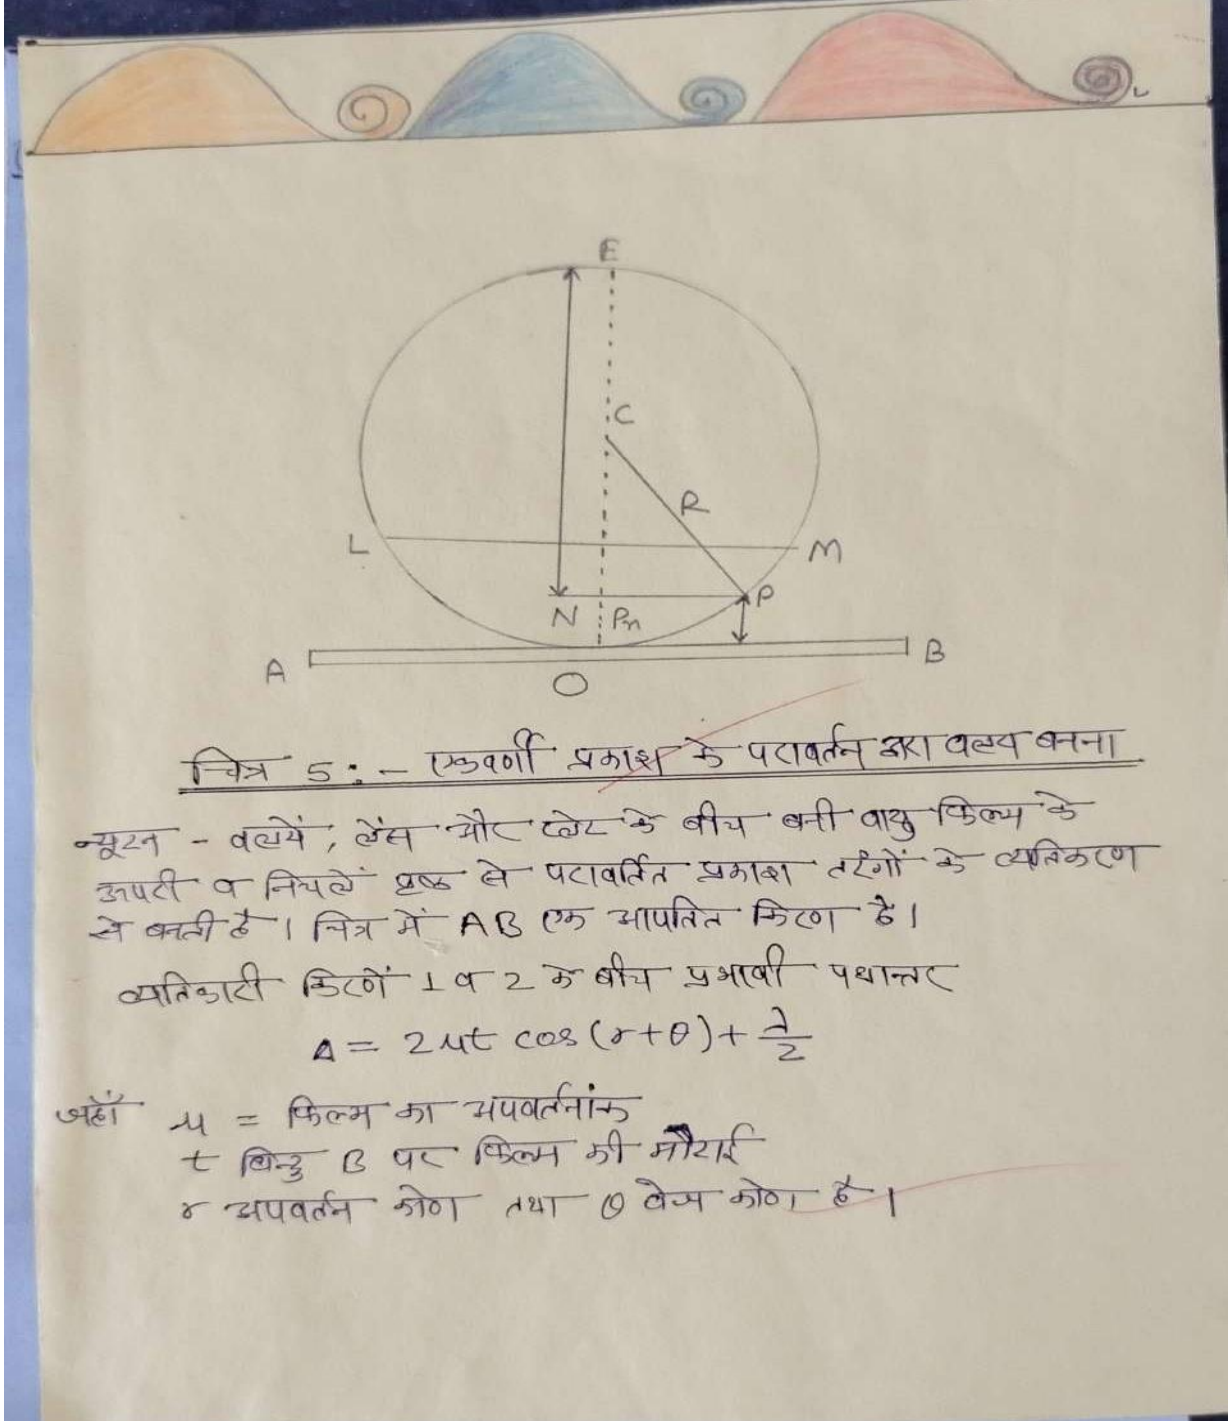 E
C
R
L
M
N
Pn
P
A
B
O
चित्र 5:- एकवर्णी प्रकाश के परावर्तन द्वारा वलय बनना
न्यूटन - वलयें, लेंस और प्लेट के बीच बनी वायु फिल्म के
ऊपरी व निचले पृष्ठ से परावर्तित प्रकाश तरंगों के व्यतिकरण
से बनती है। चित्र में AB एक आपतित किरण है।
व्यतिकारी किरणों 1 व 2 के बीच प्रभावी पथान्तर
Δ = 2μt cos (r+θ) + λ/2
जहाँ μ = फिल्म का अपवर्तनांक
t बिन्दु B पर फिल्म की मोटाई
r अपवर्तन कोण तथा θ वेज कोण है।